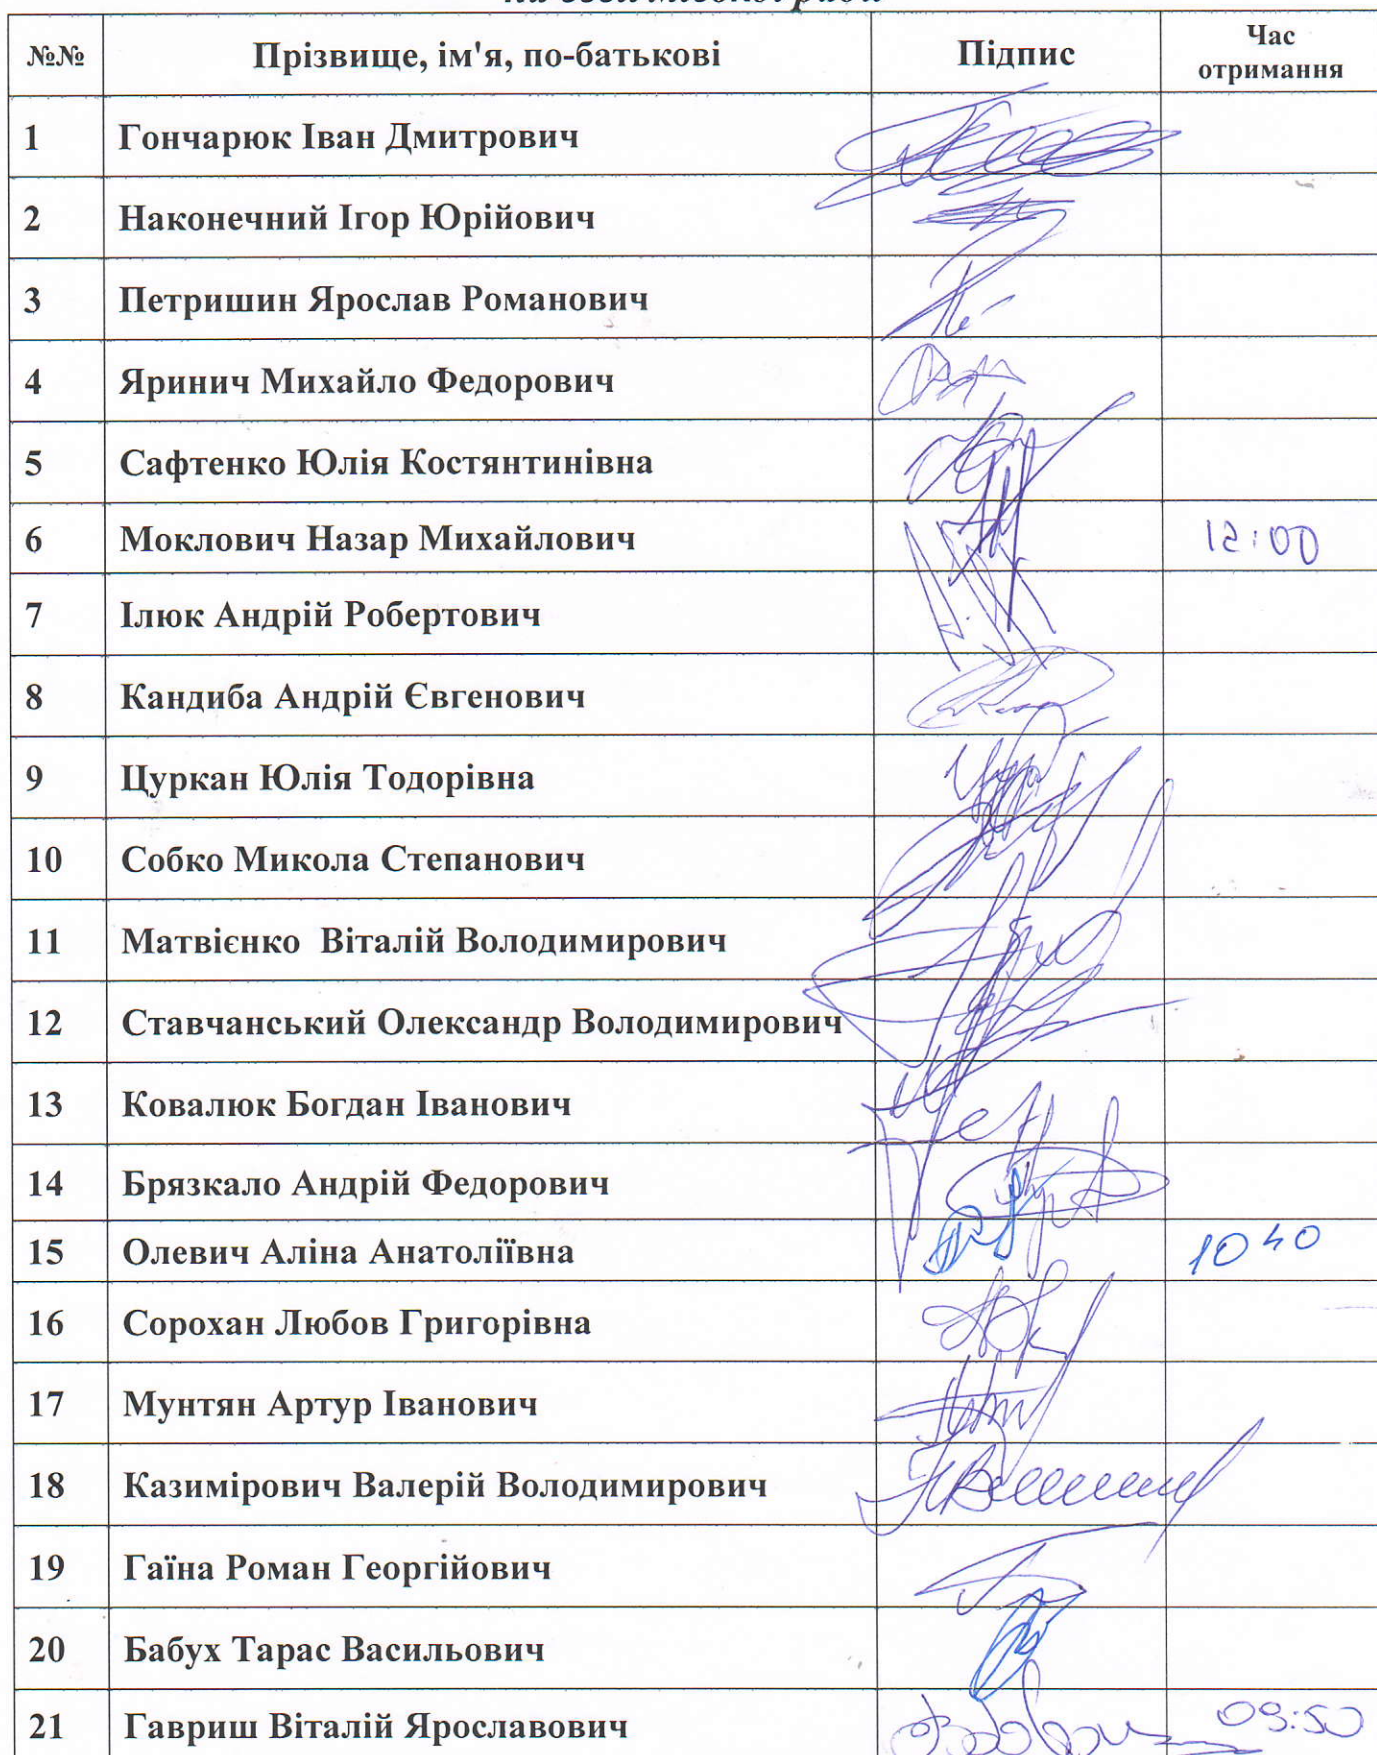 №№ Прізвище, ім'я, по-батькові Підпис Час отримання
1 Гончарюк Іван Дмитрович
2 Наконечний Ігор Юрійович
3 Петришин Ярослав Романович
4 Яринич Михайло Федорович
5 Сафтенко Юлія Костянтинівна
6 Моклович Назар Михайлович 12:00
7 Ілюк Андрій Робертович
8 Кандиба Андрій Євгенович
9 Цуркан Юлія Тодорівна
10 Собко Микола Степанович
11 Матвієнко Віталій Володимирович
12 Ставчанський Олександр Володимирович
13 Ковалюк Богдан Іванович
14 Брязкало Андрій Федорович
15 Олевич Аліна Анатоліївна 10 40
16 Сорохан Любов Григорівна
17 Мунтян Артур Іванович
18 Казимірович Валерій Володимирович
19 Гаїна Роман Георгійович
20 Бабух Тарас Васильович
21 Гавриш Віталій Ярославович 09:50